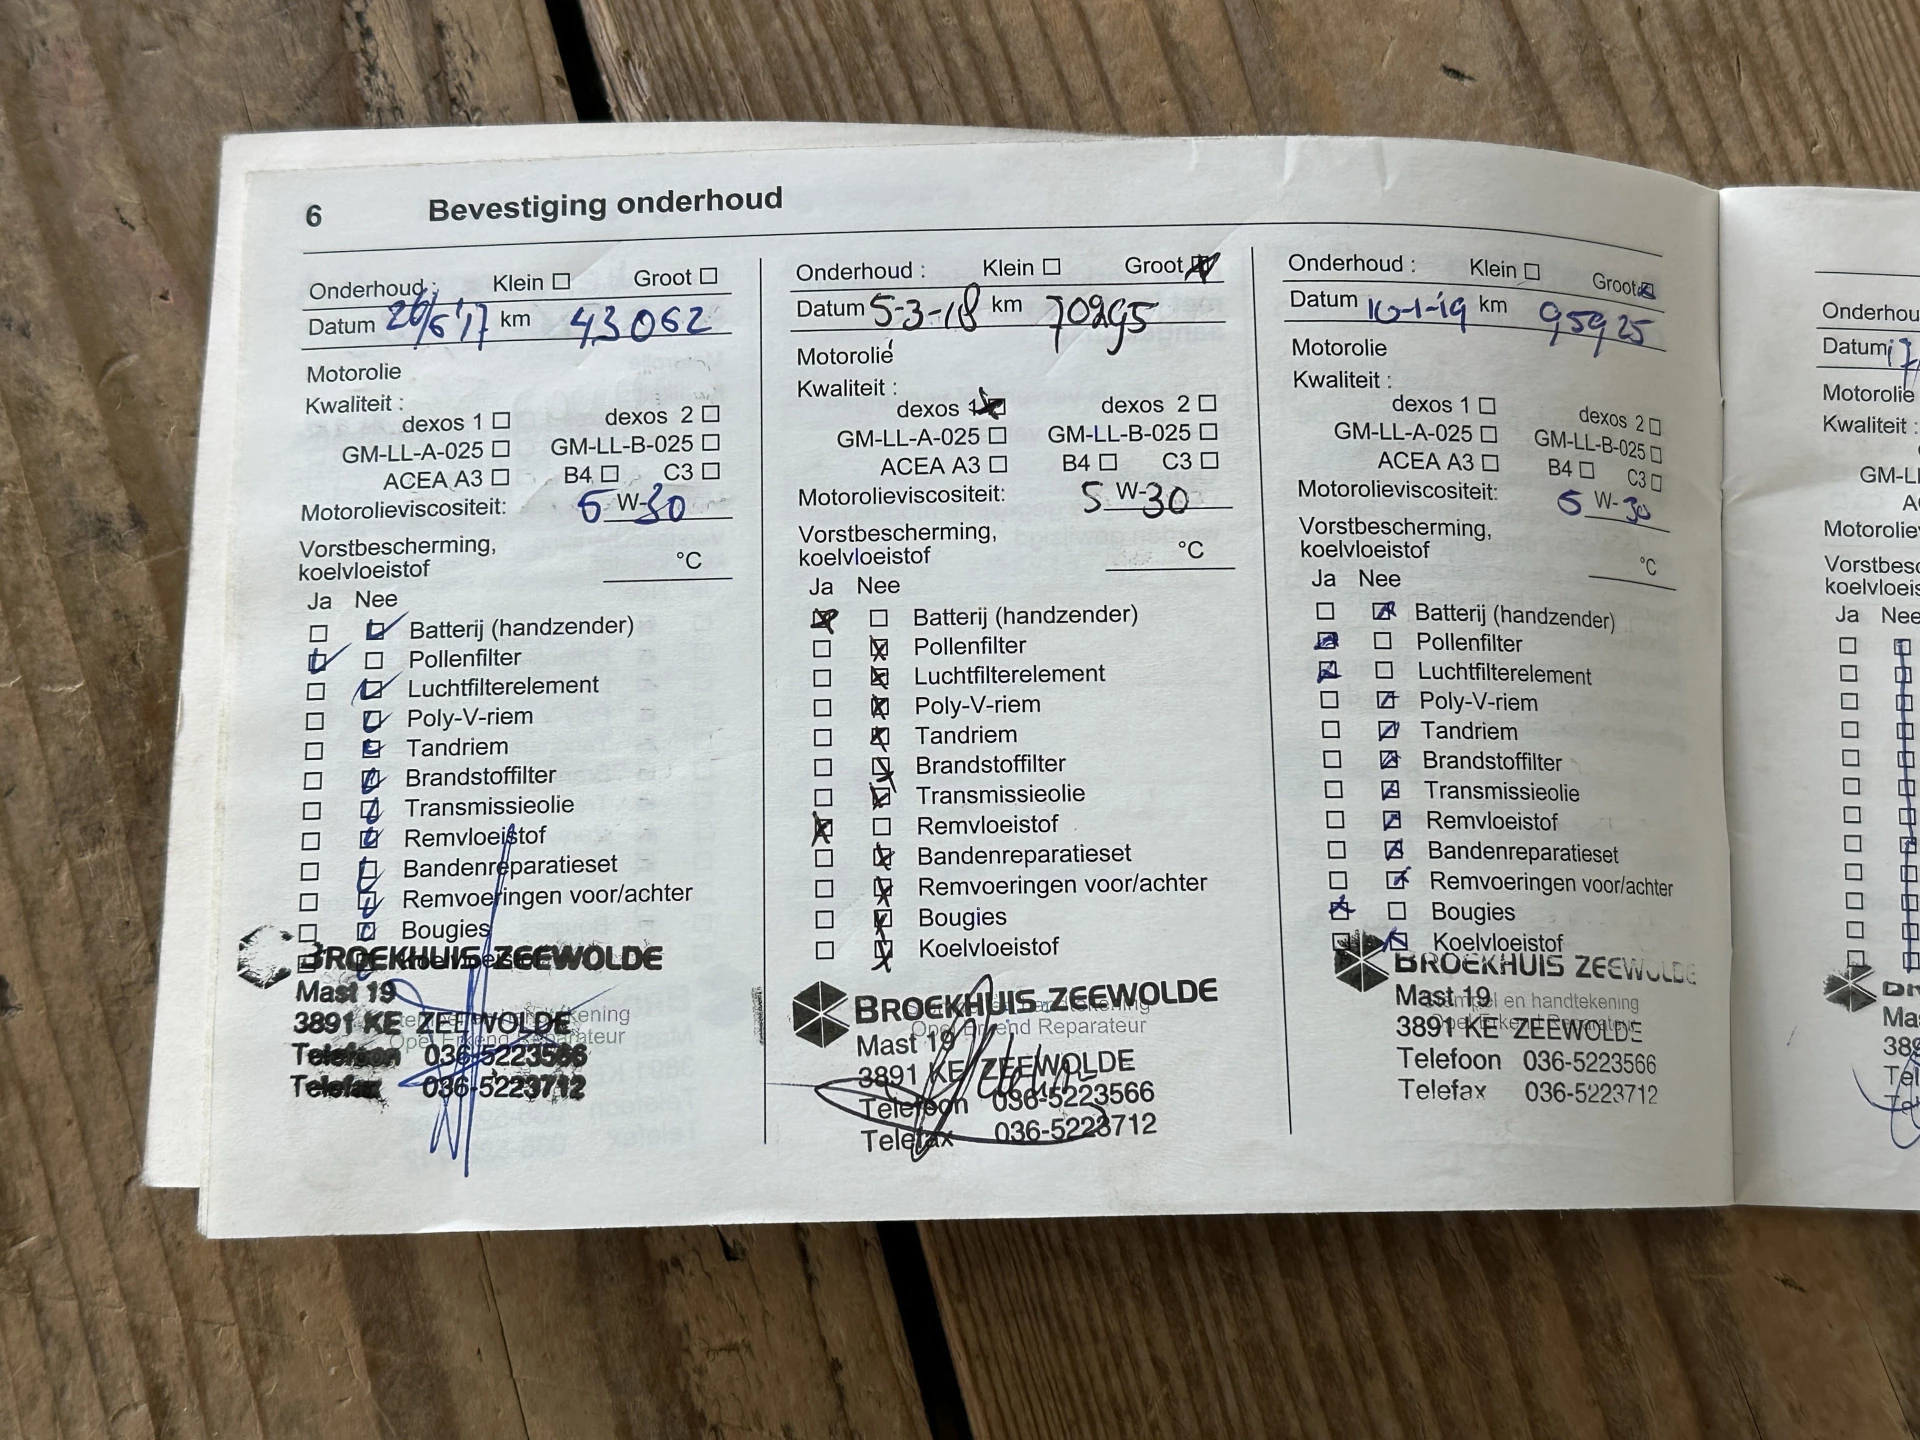 6 Bevestiging onderhoud
Onderhoud : Klein Groot
Datum 26/6 '17 km 43062
Motorolie
Kwaliteit :
dexos 1 dexos 2
GM-LL-A-025 GM-LL-B-025
ACEA A3 B4 C3
Motorolieviscositeit: 5 W-30
Vorstbescherming,
koelvloeistof °C
Ja Nee
Batterij (handzender)
Pollenfilter
Luchtfilterelement
Poly-V-riem
Tandriem
Brandstoffilter
Transmissieolie
Remvloeistof
Bandenreparatieset
Remvoeringen voor/achter
Bougies
BROEKHUIS ZEEWOLDE
Mast 19
3891 KE ZEEWOLDE
Telefoon 036-5223566
Telefax 036-5223712
Onderhoud : Klein Groot
Datum 5-3-18 km 70295
Motorolie
Kwaliteit :
dexos 1 dexos 2
GM-LL-A-025 GM-LL-B-025
ACEA A3 B4 C3
Motorolieviscositeit: 5 W-30
Vorstbescherming,
koelvloeistof °C
Ja Nee
Batterij (handzender)
Pollenfilter
Luchtfilterelement
Poly-V-riem
Tandriem
Brandstoffilter
Transmissieolie
Remvloeistof
Bandenreparatieset
Remvoeringen voor/achter
Bougies
Koelvloeistof
BROEKHUIS ZEEWOLDE
Opel Erkend Reparateur
Mast 19
3891 KE ZEEWOLDE
Telefoon 036-5223566
Telefax 036-5223712
Onderhoud : Klein Groot
Datum 10-1-19 km 95925
Motorolie
Kwaliteit :
dexos 1 dexos 2
GM-LL-A-025 GM-LL-B-025
ACEA A3 B4 C3
Motorolieviscositeit: 5 W-30
Vorstbescherming,
koelvloeistof °C
Ja Nee
Batterij (handzender)
Pollenfilter
Luchtfilterelement
Poly-V-riem
Tandriem
Brandstoffilter
Transmissieolie
Remvloeistof
Bandenreparatieset
Remvoeringen voor/achter
Bougies
Koelvloeistof
BROEKHUIS ZEEWOLDE
Stempel en handtekening
Mast 19
Opel Erkend Reparateur
3891 KE ZEEWOLDE
Telefoon 036-5223566
Telefax 036-5223712
Onderhou
Datum
Motorolie
Kwaliteit :
GM-L
Motorolie
Vorstbesc
koelvloeis
Ja Nee